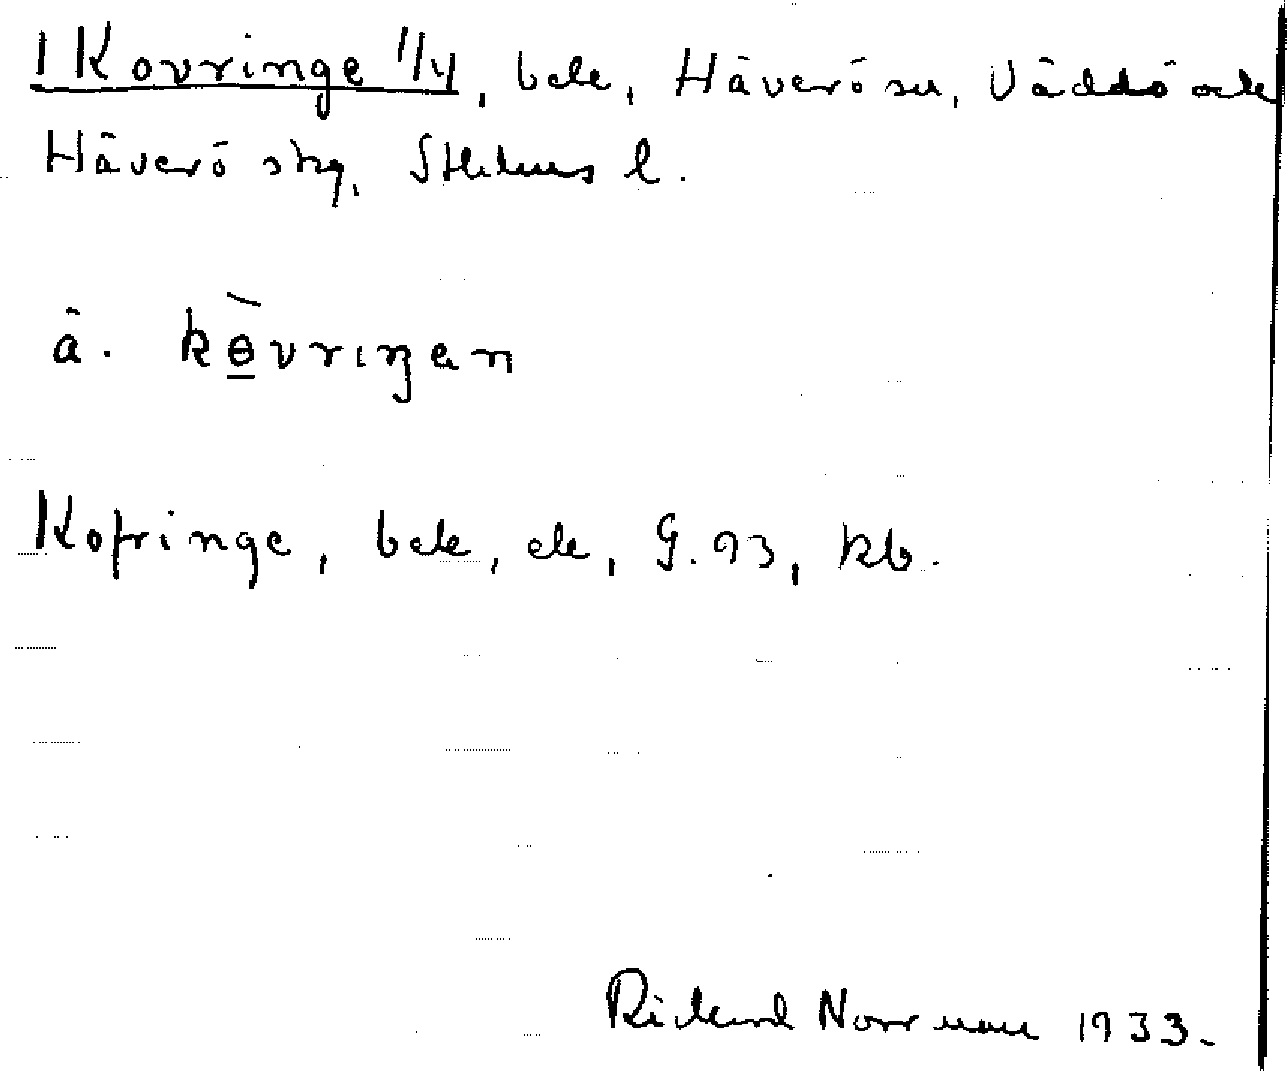 1 Kovringe 1/4, bcke, Häverö sn, Väddö och
Häverö skg, Sthlms l.
å. kɵ̀vriŋen
Kofringe, bcke, ek, G. 93, kb.
Rickard Norrman 1933.